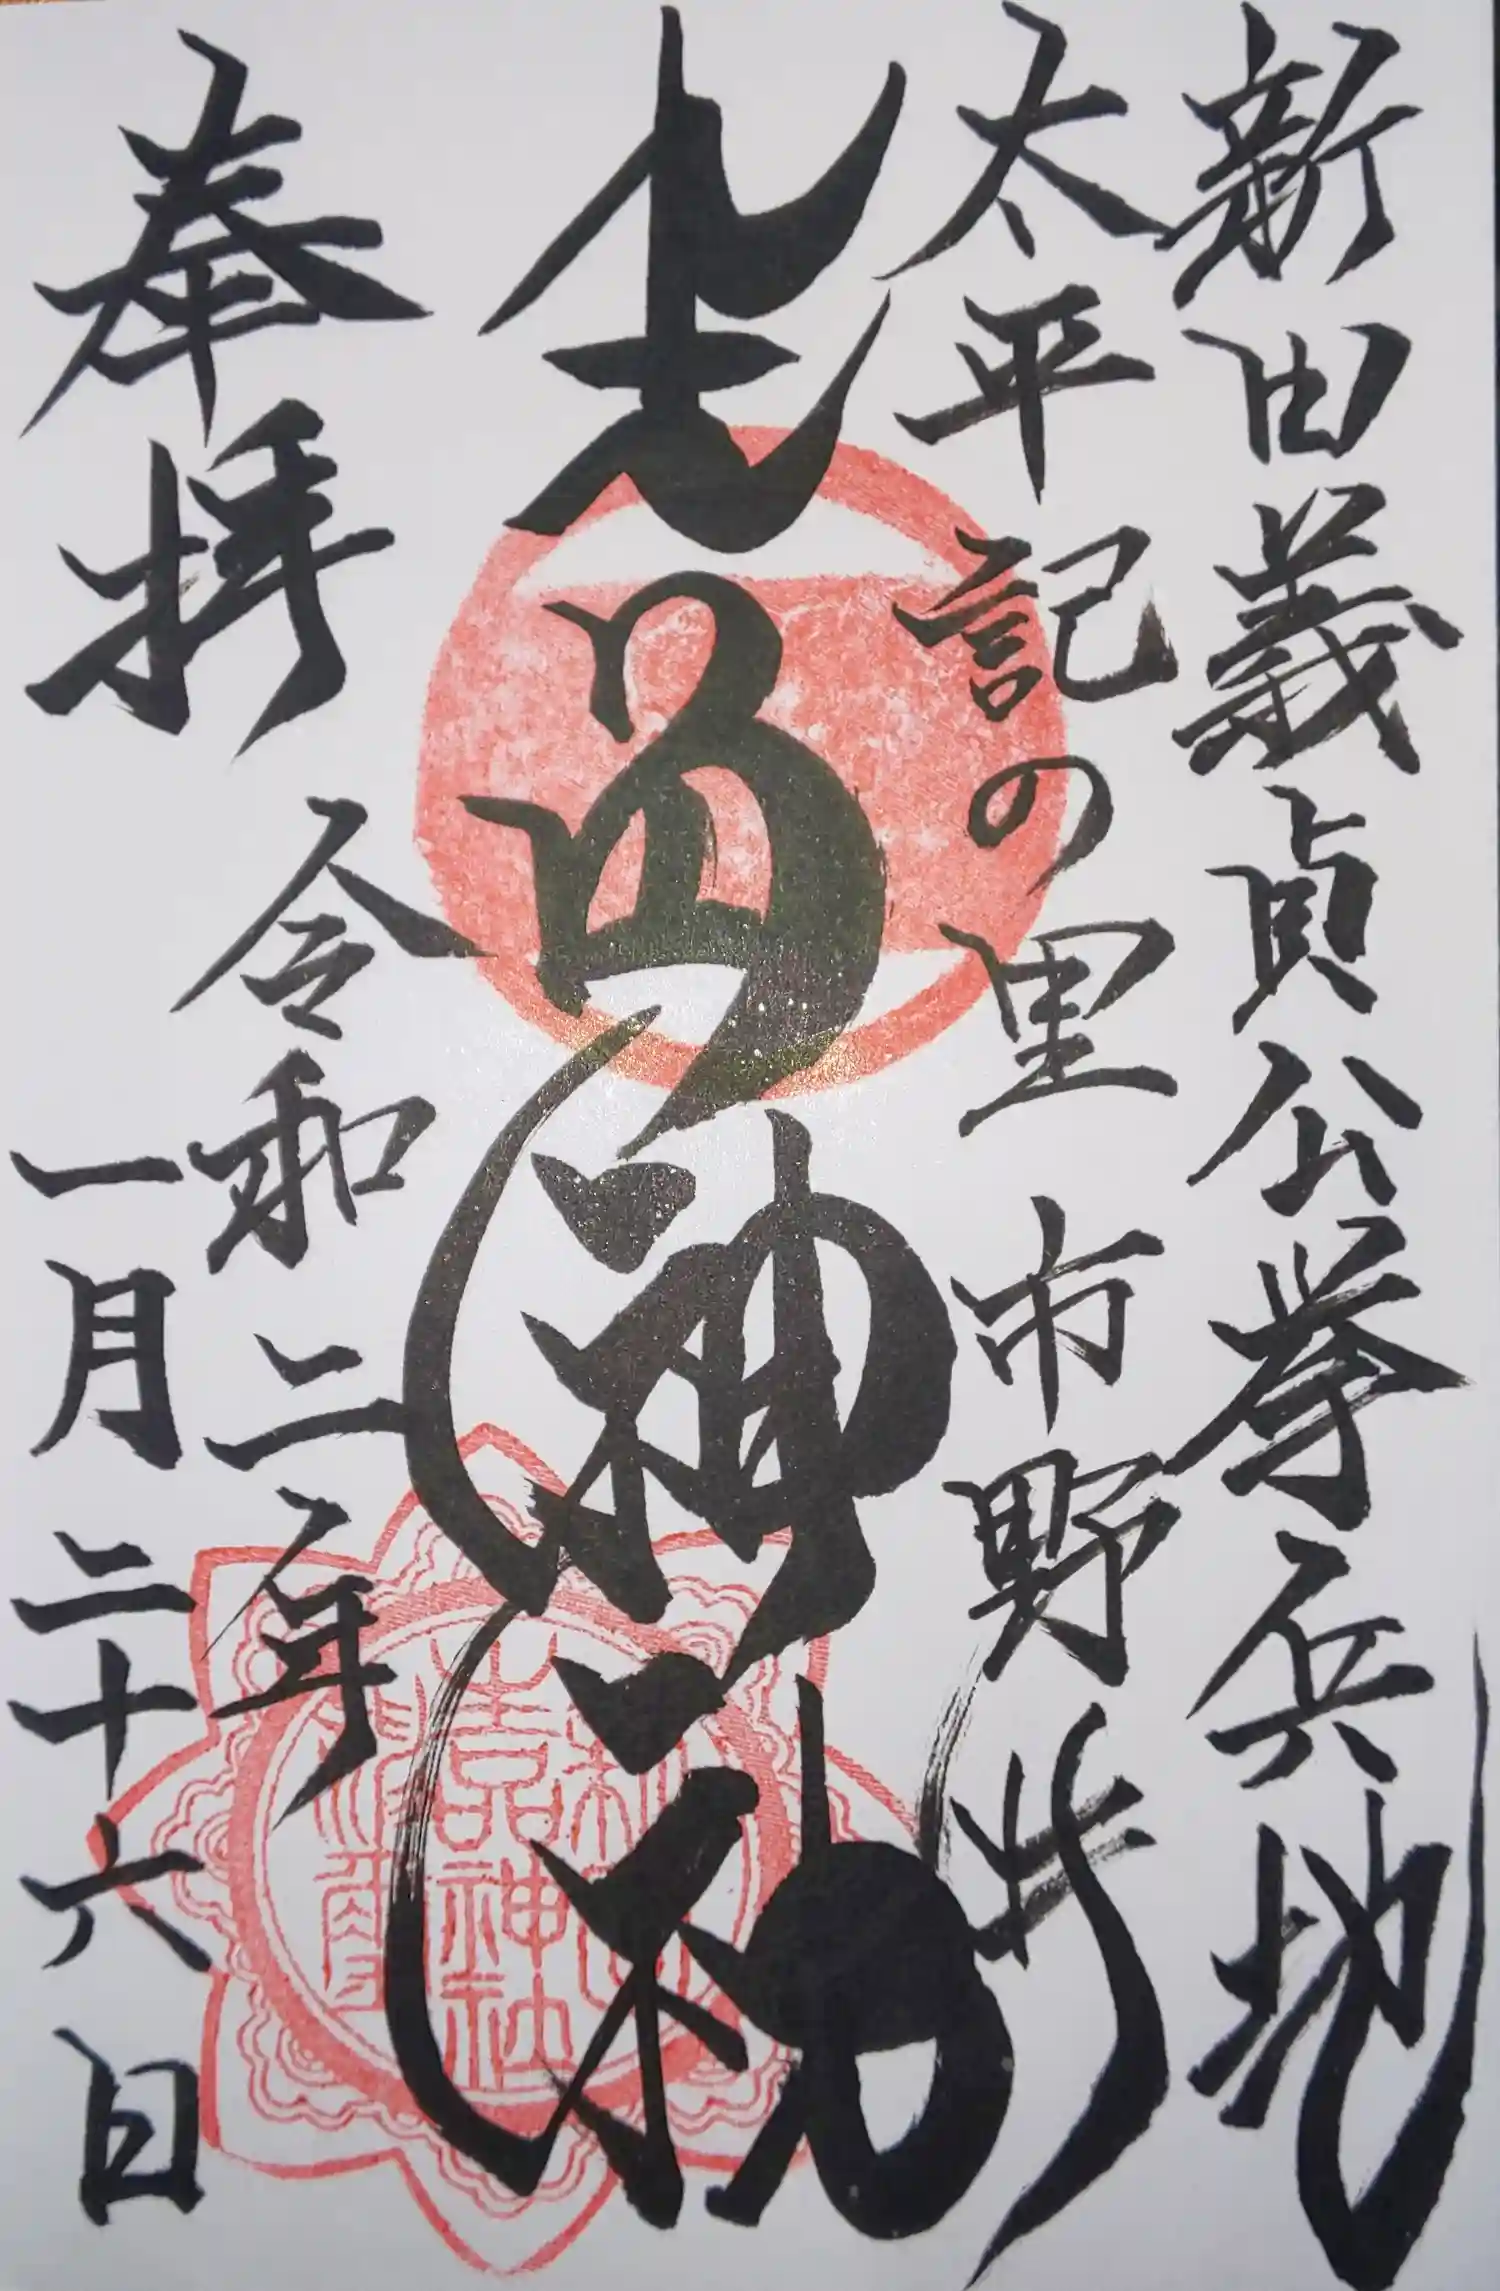 新田義貞公挙兵地
太平記の里 市野井
生品神社
奉拝
令和二年
一月二十六日
生品神社